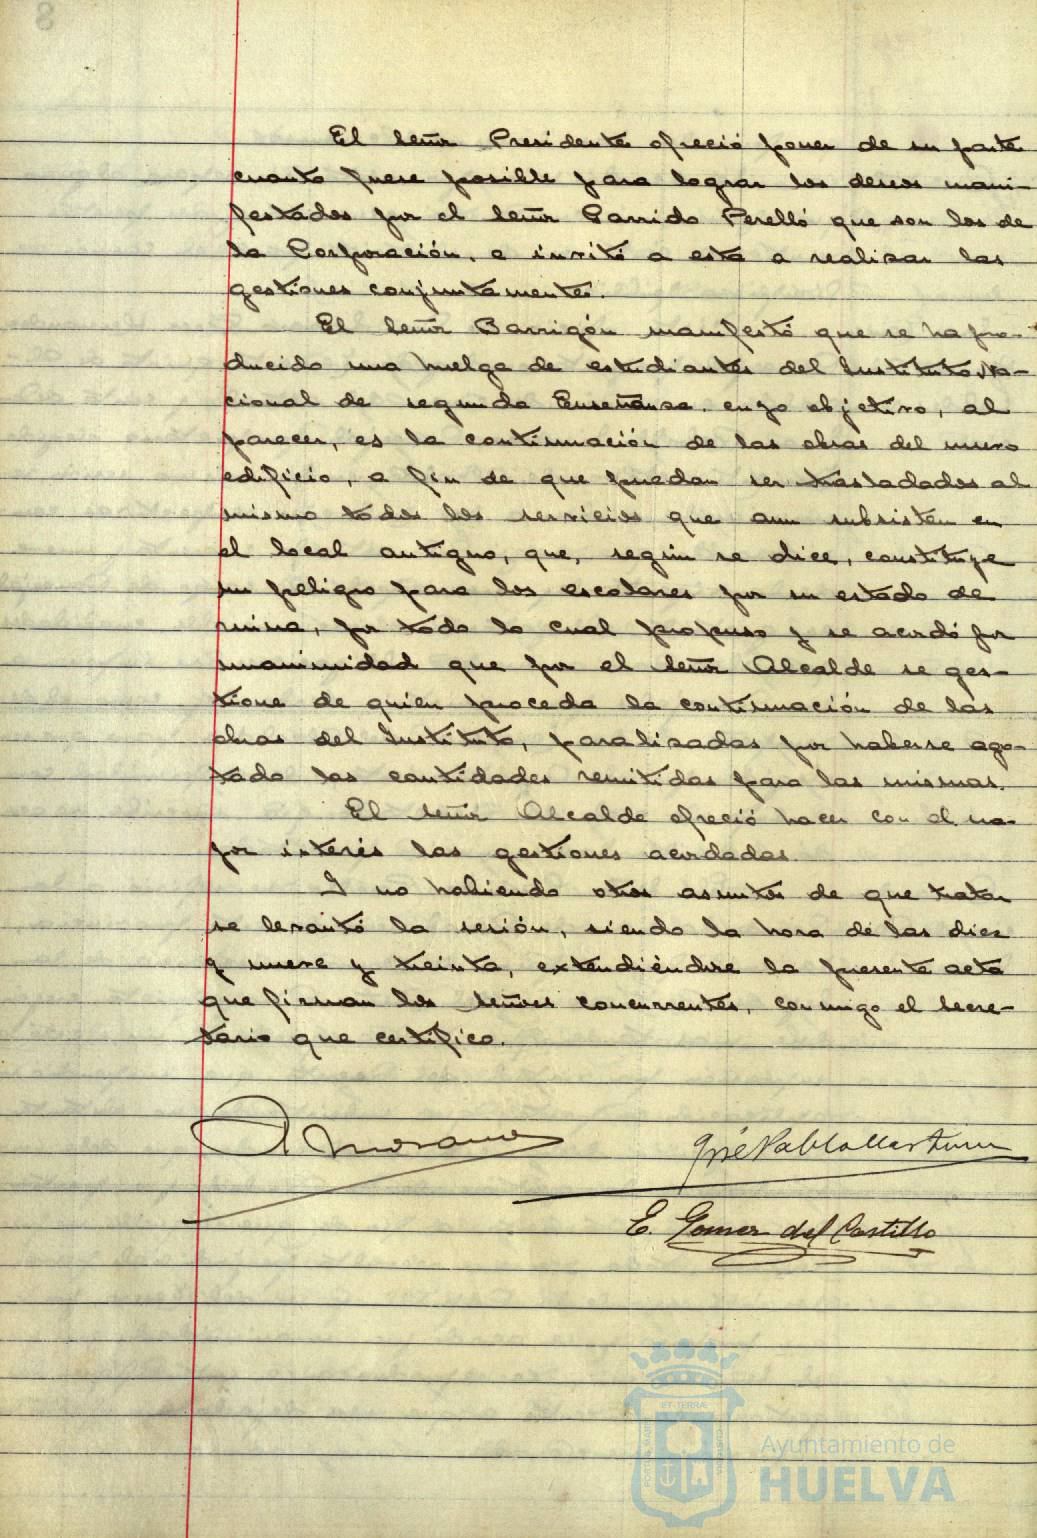 El señor Presidente ofreció poner de su parte
cuanto fuere posible para lograr los deseos mani-
festados por el señor Garrido Perelló que son los de
la Corporación, e invitó a esta a realizar las
gestiones conjuntamente.
El señor Barrigón manifestó que se ha pro-
ducido una huelga de estudiantes del Instituto Na-
cional de segunda Enseñanza, cuyo objetivo, al
parecer, es la continuación de las obras del nuevo
edificio, a fin de que puedan ser trasladados al
mismo todos los servicios que aun subsisten en
el local antiguo, que, según se dice, constituye
un peligro para los escolares por su estado de
ruina, por todo lo cual propuso y se acordó por
unanimidad que por el señor Alcalde se ges-
tione de quien proceda la continuación de las
obras del Instituto, paralizadas por haberse ago-
tado las cantidades remitidas para las mismas.
El señor Alcalde ofreció hacer con el ma-
yor interés las gestiones acordadas.
Y no habiendo otros asuntos de que tratar
se levantó la sesión, siendo la hora de las diez
y nueve y treinta, extendiéndose la presente acta
que firman los señores concurrentes, conmigo el secre-
tario que certifico.
A Moreno
José Pablo Martínez
E. Gomez del Castillo
Ayuntamiento de
HUELVA